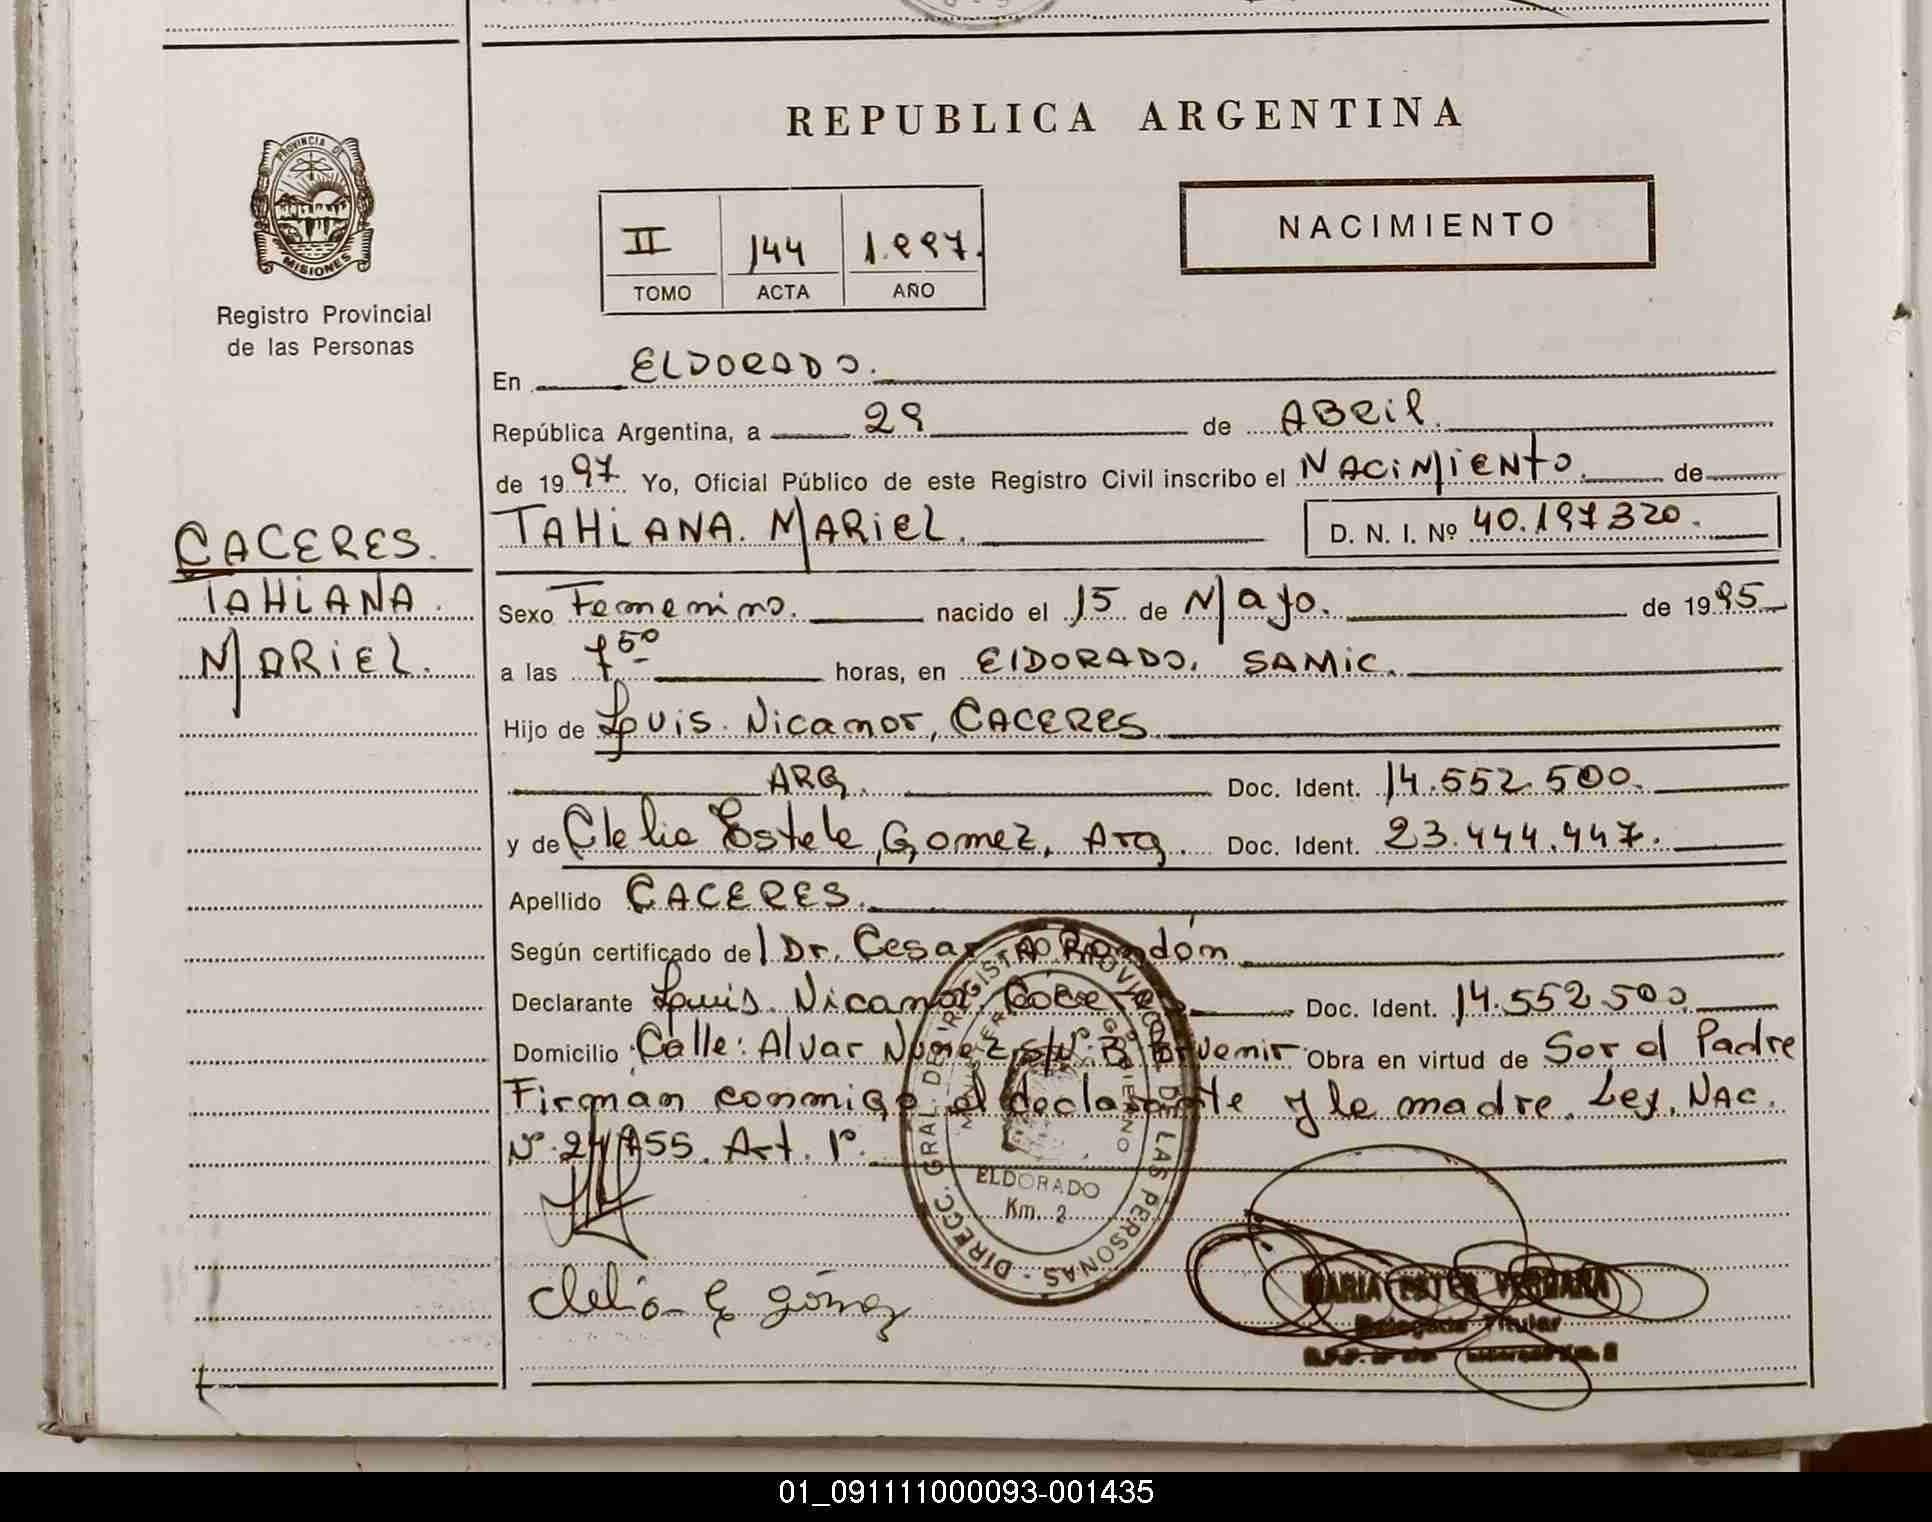 REPUBLICA ARGENTINA
PROVINCIA DE
MISIONES
Registro Provincial
de las Personas
II 144 1.997.
TOMO ACTA AÑO
NACIMIENTO
En ELDORADO.
República Argentina, a 29 de ABRil.
de 1997 Yo, Oficial Público de este Registro Civil inscribo el NACiMiENto. de
CACERES.
TAHiANA.
MARiEL.
TAHiANA. MARiEL. D. N. I. Nº 40.197320.
Sexo Femenino. nacido el 15 de Mayo. de 1995
a las 7 50 horas, en ElDORADO. SAMiC.
Hijo de Luis. Nicanor, CACERES
ARG. Doc. Ident. 14.552.500.
y de Clelia Estela, Gomez, Arg. Doc. Ident. 23.444.447.
Apellido CACERES.
Según certificado del Dr. Cesar A. Rondón
Declarante Luis. Nicanor. Caceres Doc. Ident. 14.552 500
Domicilio Calle: Alvar Nuñez s/Nº Bº Porvenir Obra en virtud de Ser el Padre
Firman conmigo el declarante y la madre. Ley. NAC.
Nº 24755. Art. 1º.
DIRECC. GRAL. DEL REGISTRO PROVINCIAL DE LAS PERSONAS
MINISTERIO GOBIERNO
ELDORADO
Km. 2
Clelia E gómez
MARIA ESTER VERGARA
Delegada Titular
01_091111000093-001435